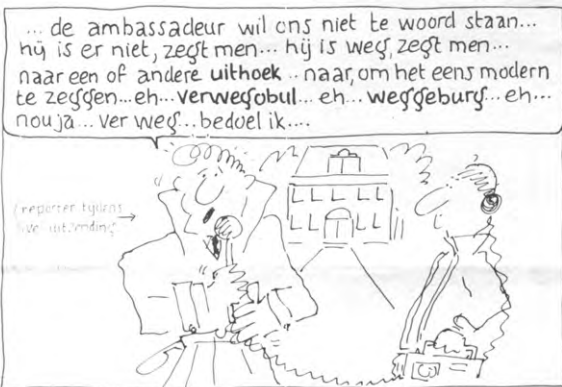 ... de ambassadeur wil ons niet te woord staan...
hij is er niet, zegt men... hij is weg, zegt men...
naar een of andere uithoek .. naar, om het eens modern
te zeggen...eh..verwegobul...eh...weggeburg...eh...
nou ja... ver weg... bedoel ik....
(reporter tijdens →
live uitzending